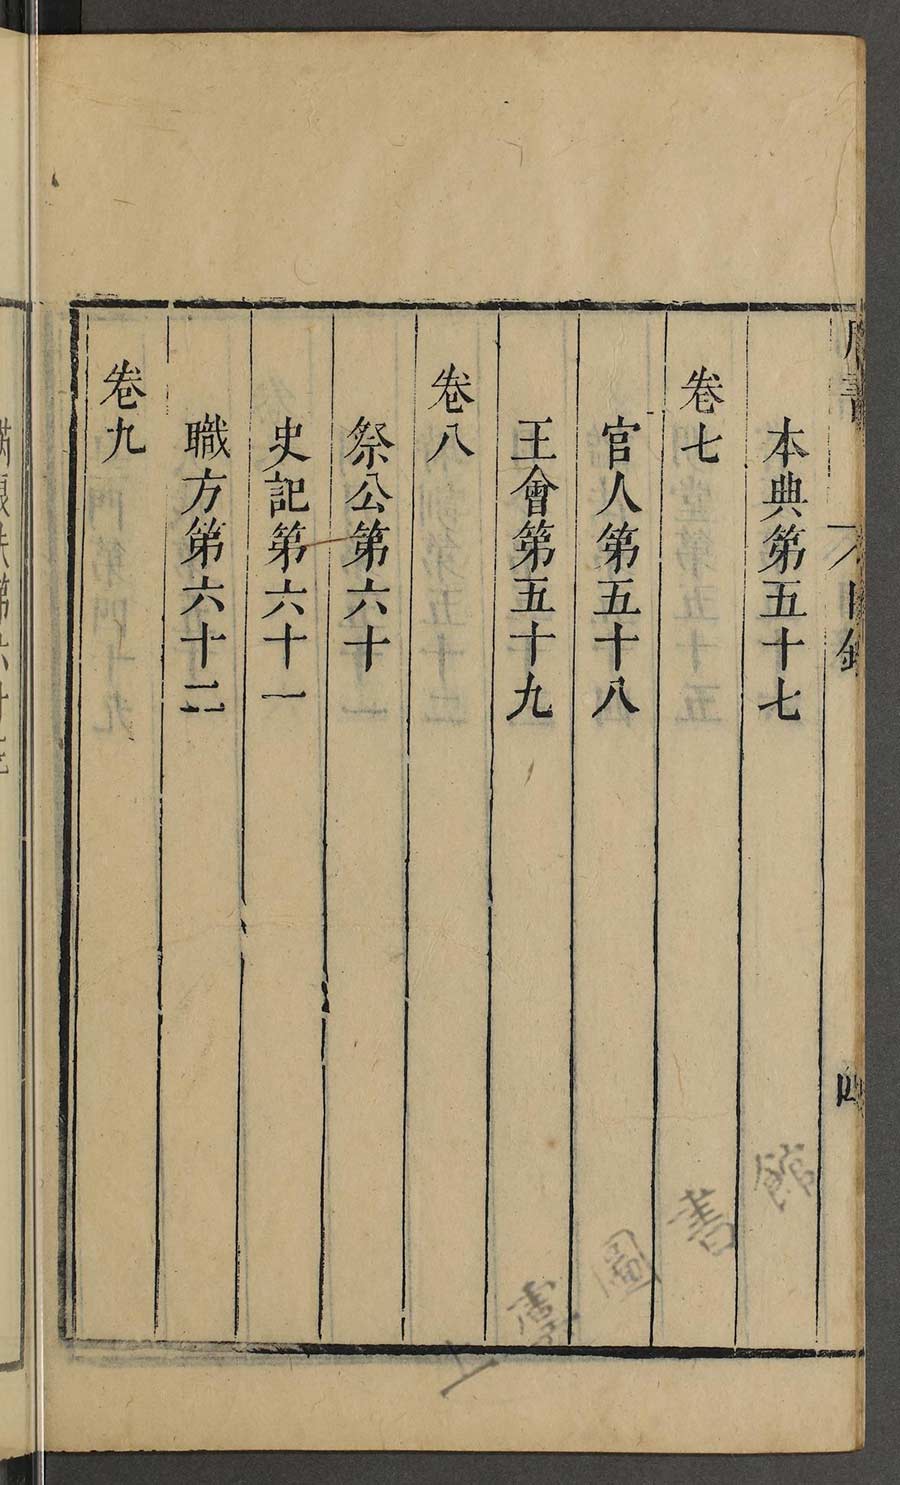 本典第五十七
卷七
官人第五十八
王會第五十九
卷八
祭公第六十
史記第六十一
職方第六十二
卷九
四
上虞圖書館